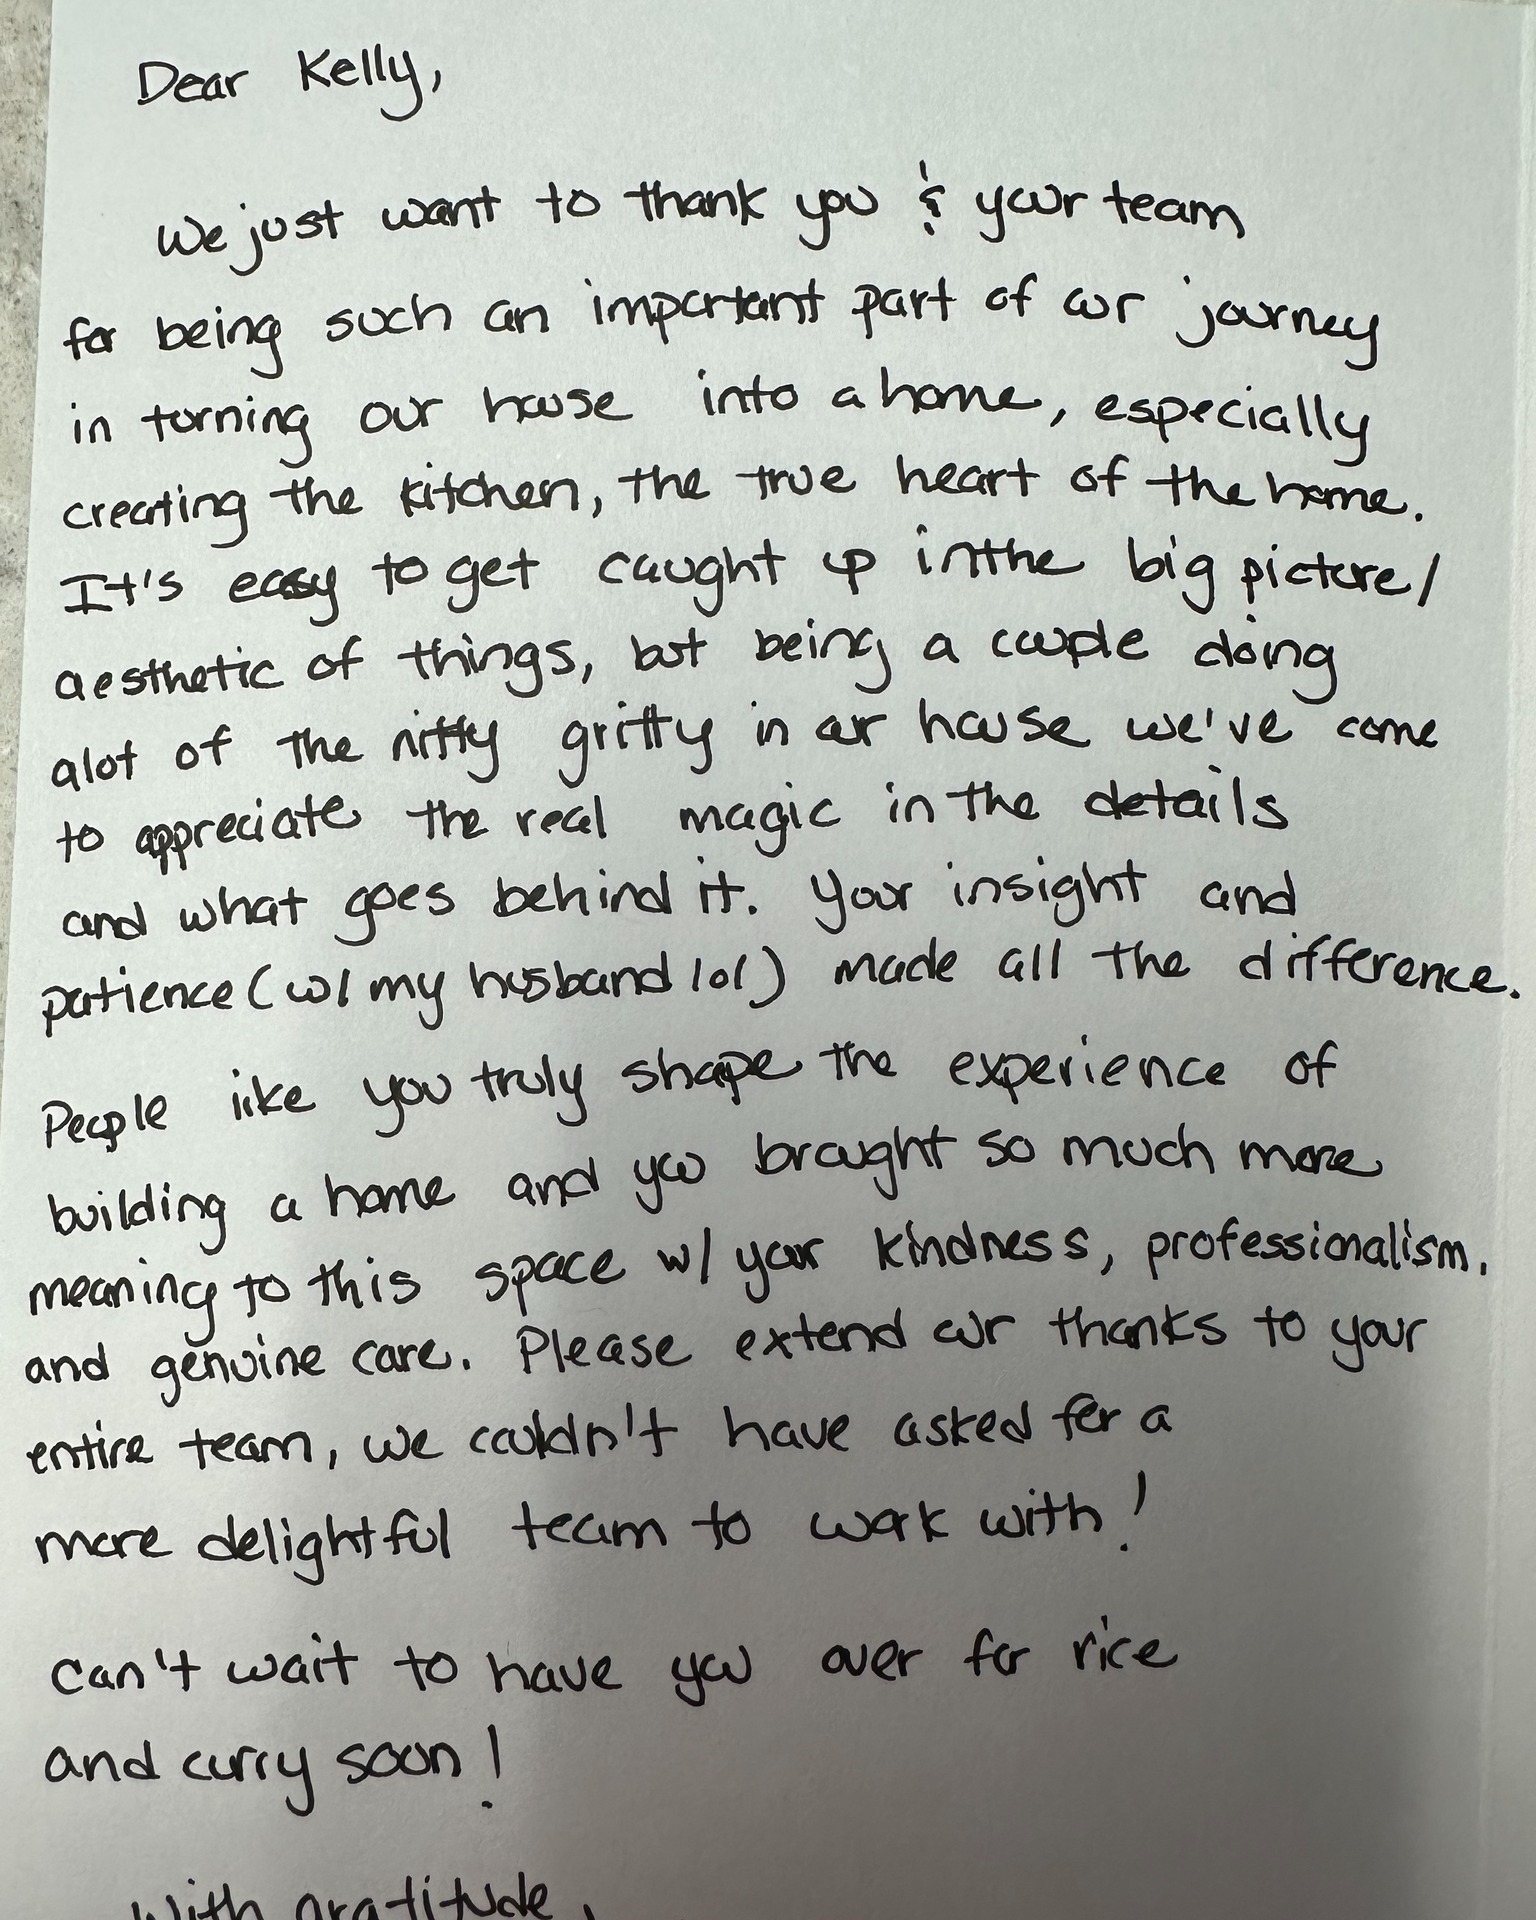 Dear Kelly,
We just want to thank you & your team
for being such an important part of our journey
in turning our house into a home, especially
creating the kitchen, the true heart of the home.
It's easy to get caught up in the big picture/
aesthetic of things, but being a couple doing
alot of the nitty gritty in our house we've come
to appreciate the real magic in the details
and what goes behind it. Your insight and
patience (w/ my husband lol) made all the difference.
People like you truly shape the experience of
building a home and you brought so much more
meaning to this space w/ your kindness, professionalism,
and genuine care. Please extend our thanks to your
entire team, we couldn't have asked for a
more delightful team to work with!
Can't wait to have you over for rice
and curry soon!
With gratitude,